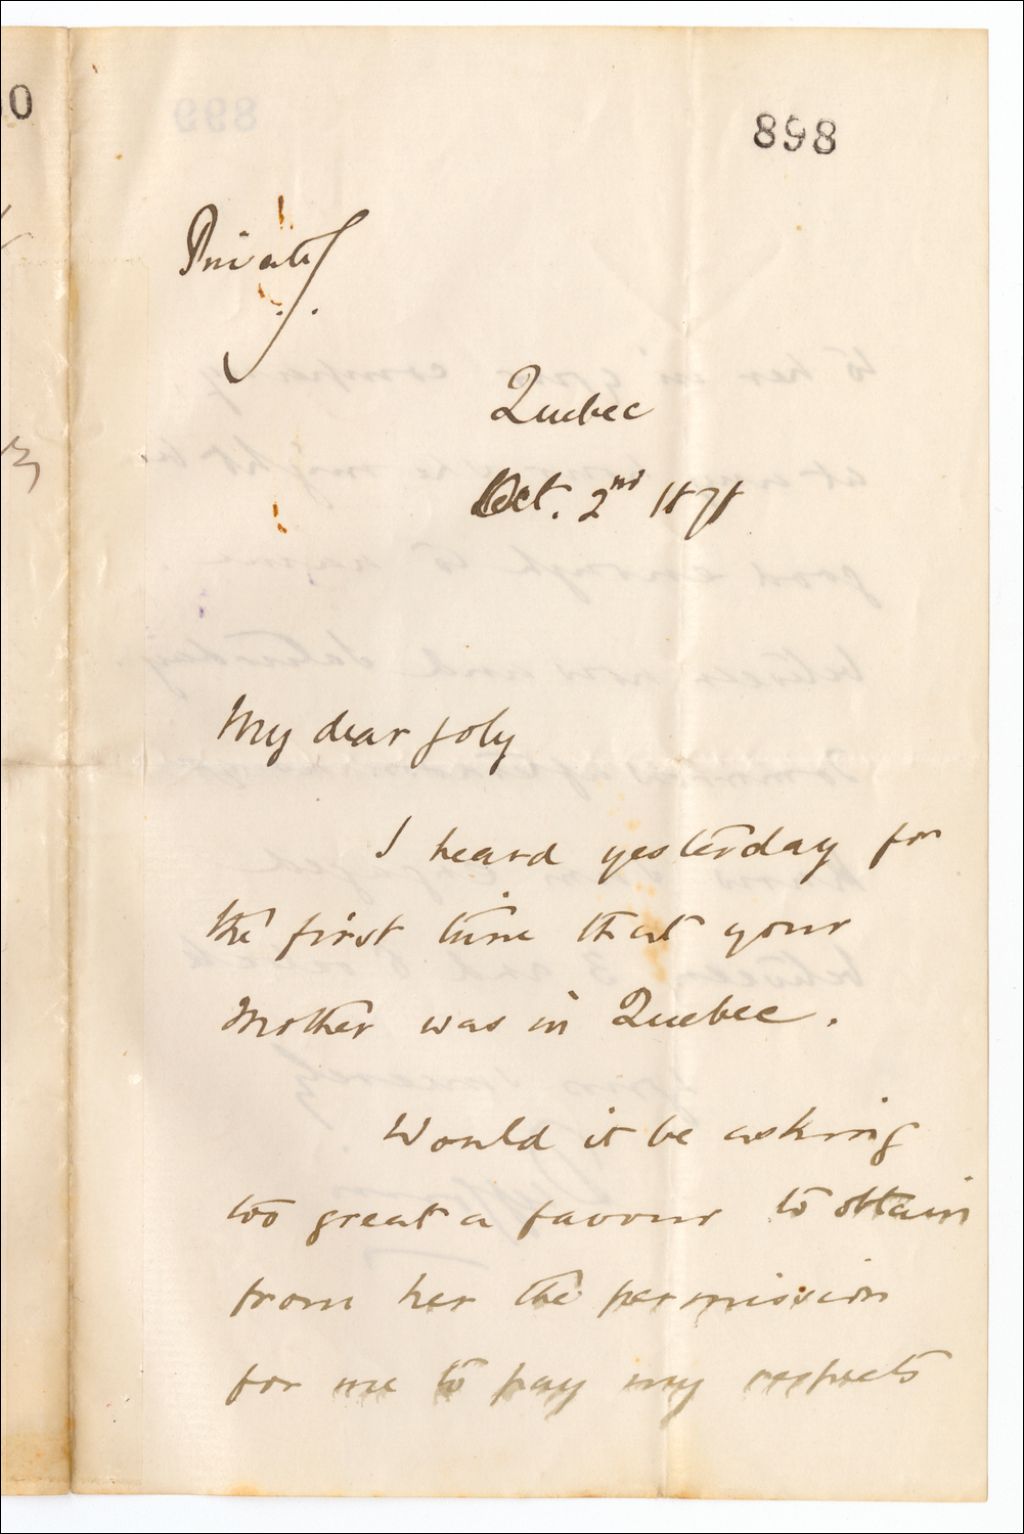 898
Private
Quebec
Oct. 2nd 1878
My dear Joly
I heard yesterday for
the first time that your
Mother was in Quebec.
Would it be asking
too great a favour to obtain
from her the permission
for me to pay my respects